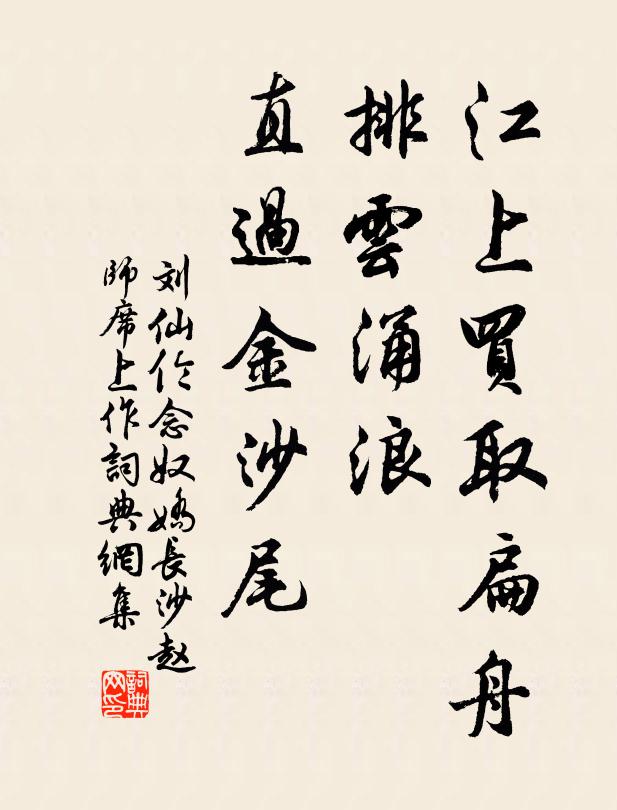 江上買取扁舟
排雲涌浪
直過金沙尾
刘仙伦念奴嬌長沙赵
師席上作詞典網集
詞典網印